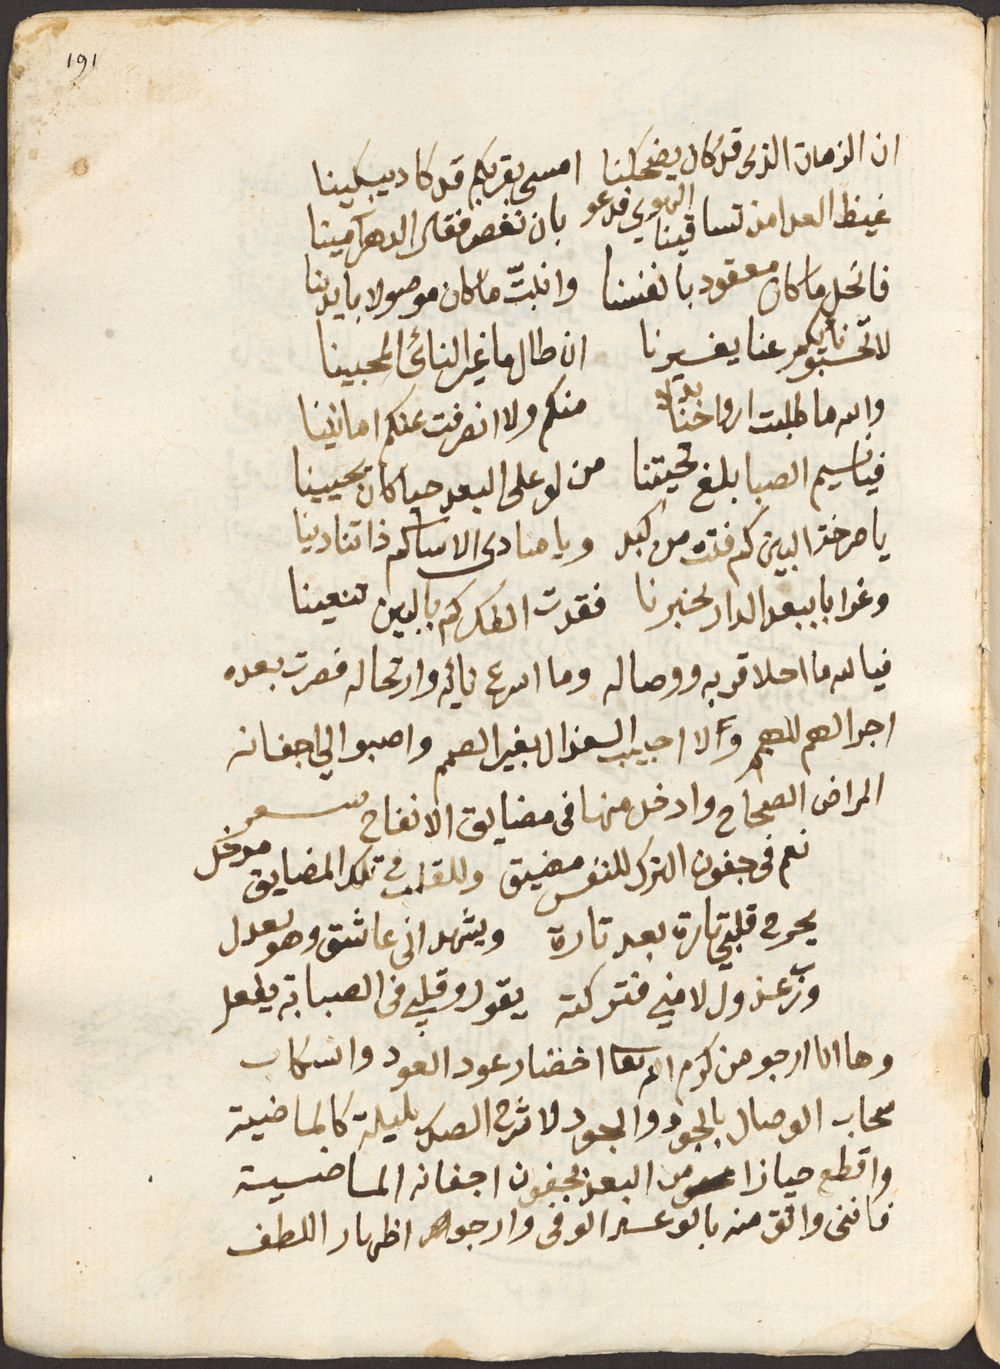 191
ان الزمان الذى قد كان يضحكنا امسى بقربكم قد كاد يبكينا
غيظ العدا من تساقينا الهوي فدعو بان نغص فقال الدهر آمينا
فانحل ما كان معقود بانفسنا وانبتّ ما كان موصولا بايدينا
لا تحسبو نأيكم عنا يغيرنا ان طال ما غير النائى المحبينا
والله ما طلبت ارواحنا بدلا منكم ولا انصرفت عنكم امانينا
فيا نسيم الصبا بلغ تحيتنا من لو على البعد حيا كان يحيينا
يا صرخة البين كم فتت من كبد ويا منادى الاسا كم ذا تنادينا
وغرابا ببعد الدار تخبرنا فقدت الفك كم بالبين تنعينا
فيالله ما احلا قربه ووصاله وما اسرع نأيه وارتحاله فصرت بعده
اجر الهم للهم ولا اجيب العذال بغير الصمم واصبوا الي اجفانه
المراض الصحاح وادخل منها فى مضايق الانفاح شعر
نعم فى جفون الترك للنفس مضيق وللقلب في تلك المضايق مدخل
يجرح قلبي تارة بعد تارة ويشهد انى عاشق وهو يعدل
وربّ عذول لامني فتركته يقول وقلبي فى الصبابة يفعل
وها انا ارجو من كرم الله تعا اخضار عود العود وانسكاب
سحاب الوصال بالجود والجود لاشرح الصدر بليلة كالماضية
واقطع حيازا من البعد بجفون اجفانه الماضية
فاننى واثق منه بالوعد الوفى وارجو اظهار اللطف